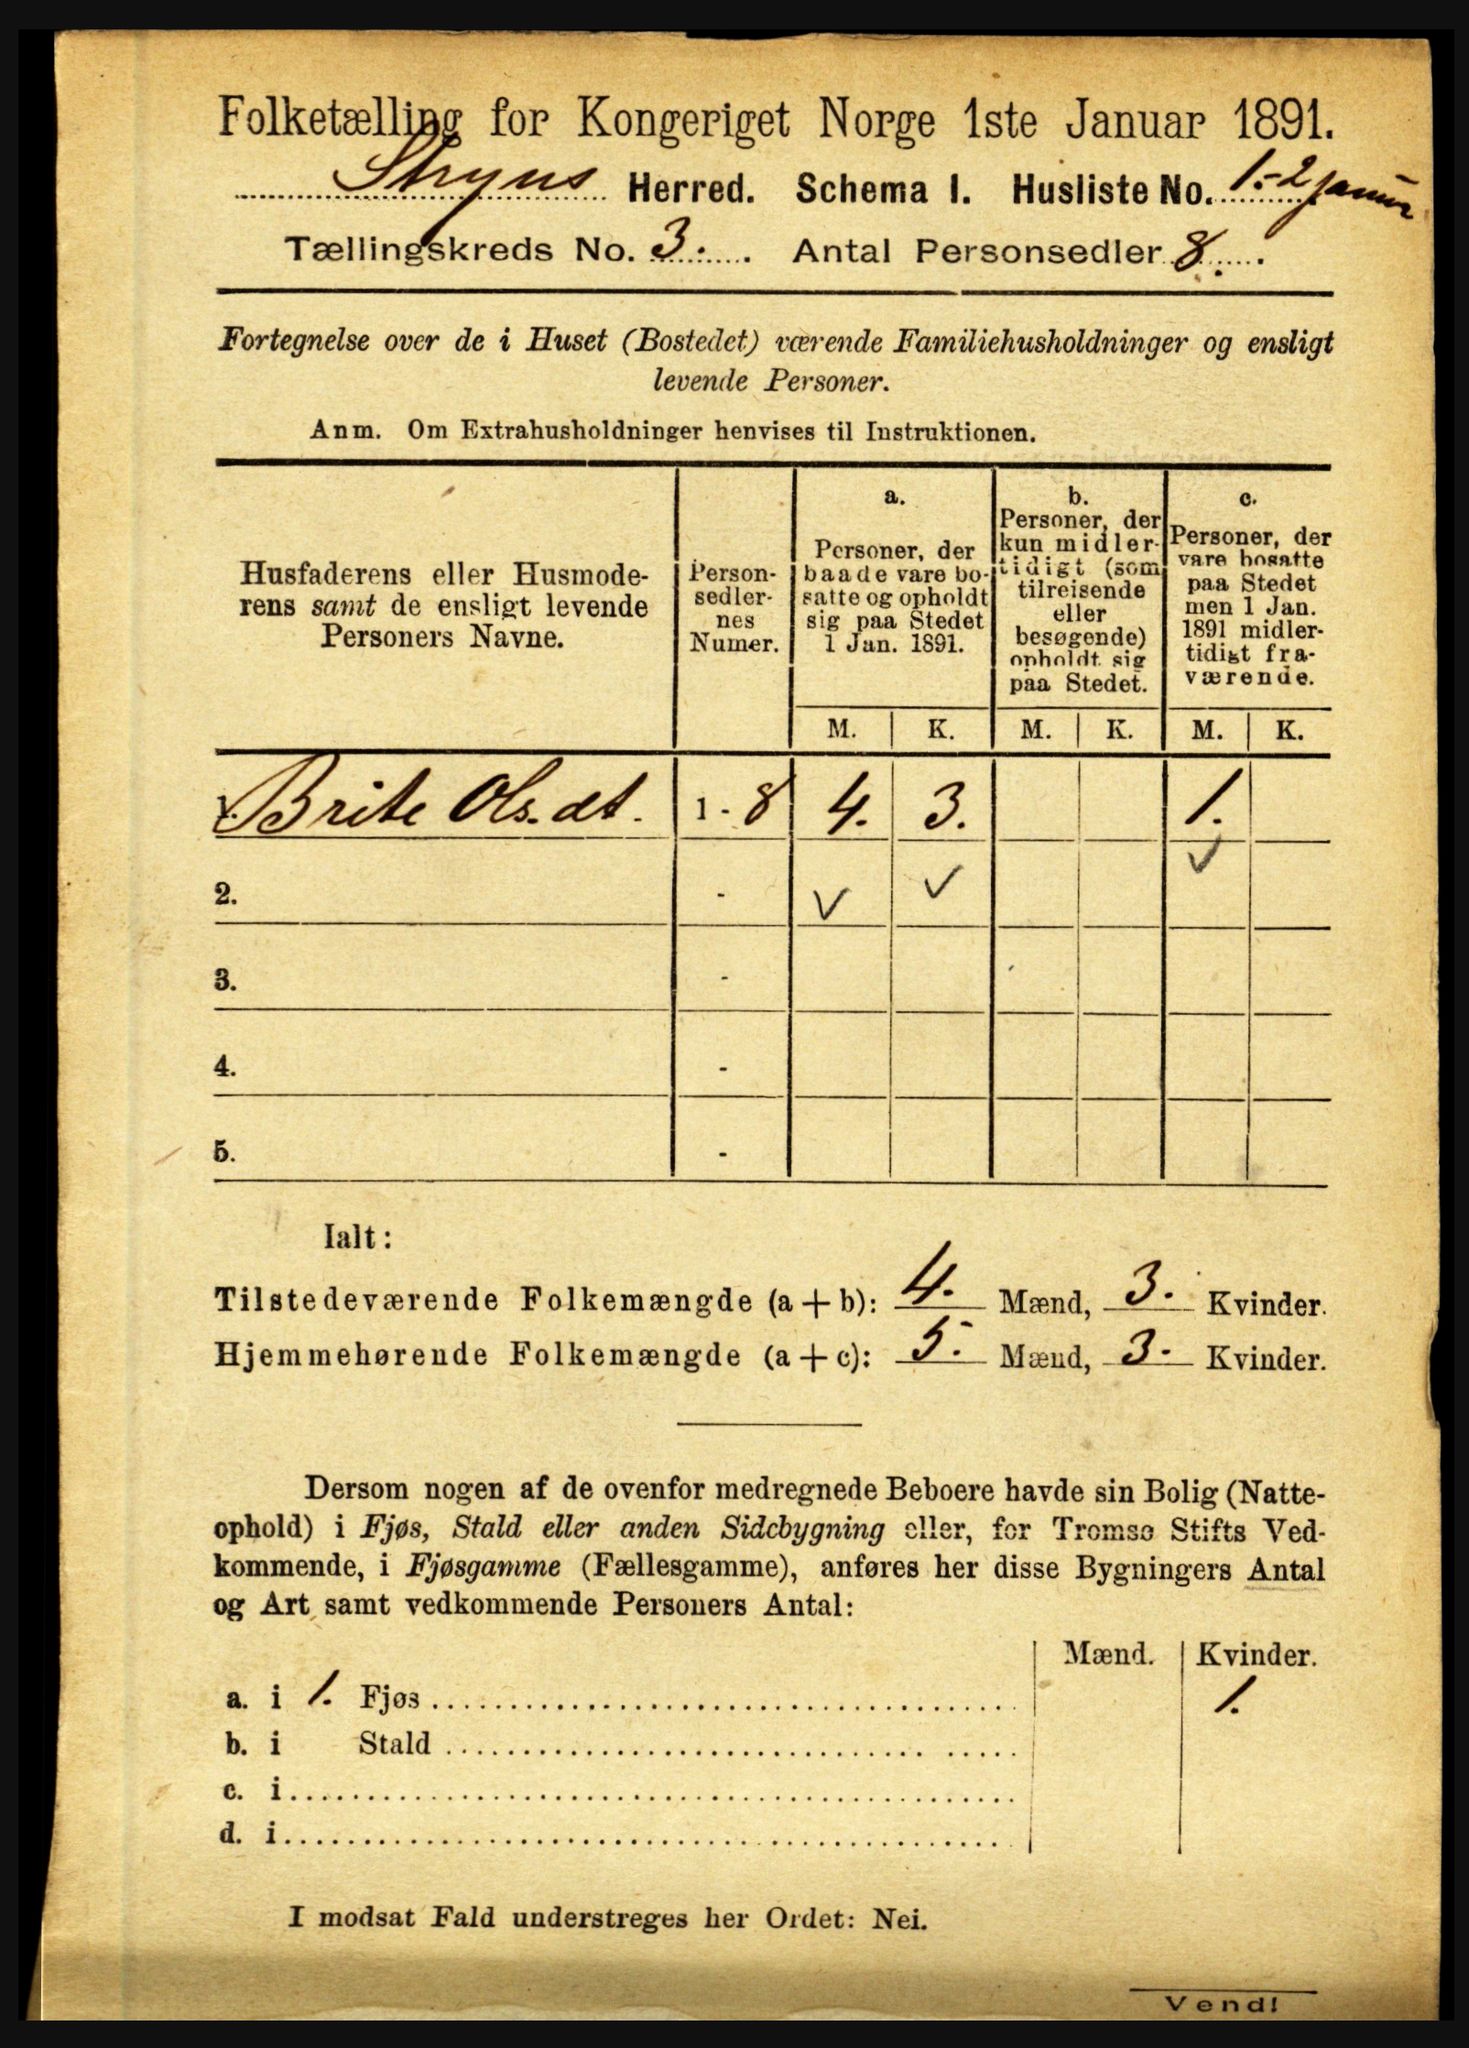 Folketælling for Kongeriget Norge 1ste Januar 1891.
Stryns Herred. Schema I. Husliste No. 1.-2 januar
Tællingskreds No. 3. Antal Personsedler 8.
Fortegnelse over de i Huset (Bostedet) værende Familiehusholdninger og ensligt
levende Personer.
Anm. Om Extrahusholdninger henvises til Instruktionen.
Husfaderens eller Husmode-
rens samt de ensligt levende
Personers Navne.
Person-
sedler-
nes
Numer.
a.
Personer, der
baade vare bo-
satte og opholdt
sig paa Stedet
1 Jan. 1891.
b.
Personer, der
kun midler-
tidigt (som
tilreisende
eller
besøgende)
opholdt sig
paa Stedet.
c.
Personer, der
vare bosatte
paa Stedet
men 1 Jan.
1891 midler-
tidigt fra-
værende.
M. K. M. K. M. K.
1. Brite Ols.dt. 1 - 8 4. 3. 1.
2. - ✓ ✓ ✓
3. -
4. -
5. -
Ialt:
Tilstedeværende Folkemængde (a + b): 4. Mænd, 3. Kvinder.
Hjemmehørende Folkemængde (a + c): 5. Mænd, 3. Kvinder.
Dersom nogen af de ovenfor medregnede Beboere havde sin Bolig (Natte-
ophold) i Fjøs, Stald eller anden Sidebygning eller, for Tromsø Stifts Ved-
kommende, i Fjøsgamme (Fællesgamme), anføres her disse Bygningers Antal
og Art samt vedkommende Personers Antal:
Mænd. Kvinder.
a. i 1. Fjøs 1.
b. i Stald
c. i
d. i
I modsat Fald understreges her Ordet: Nei.
Vend!